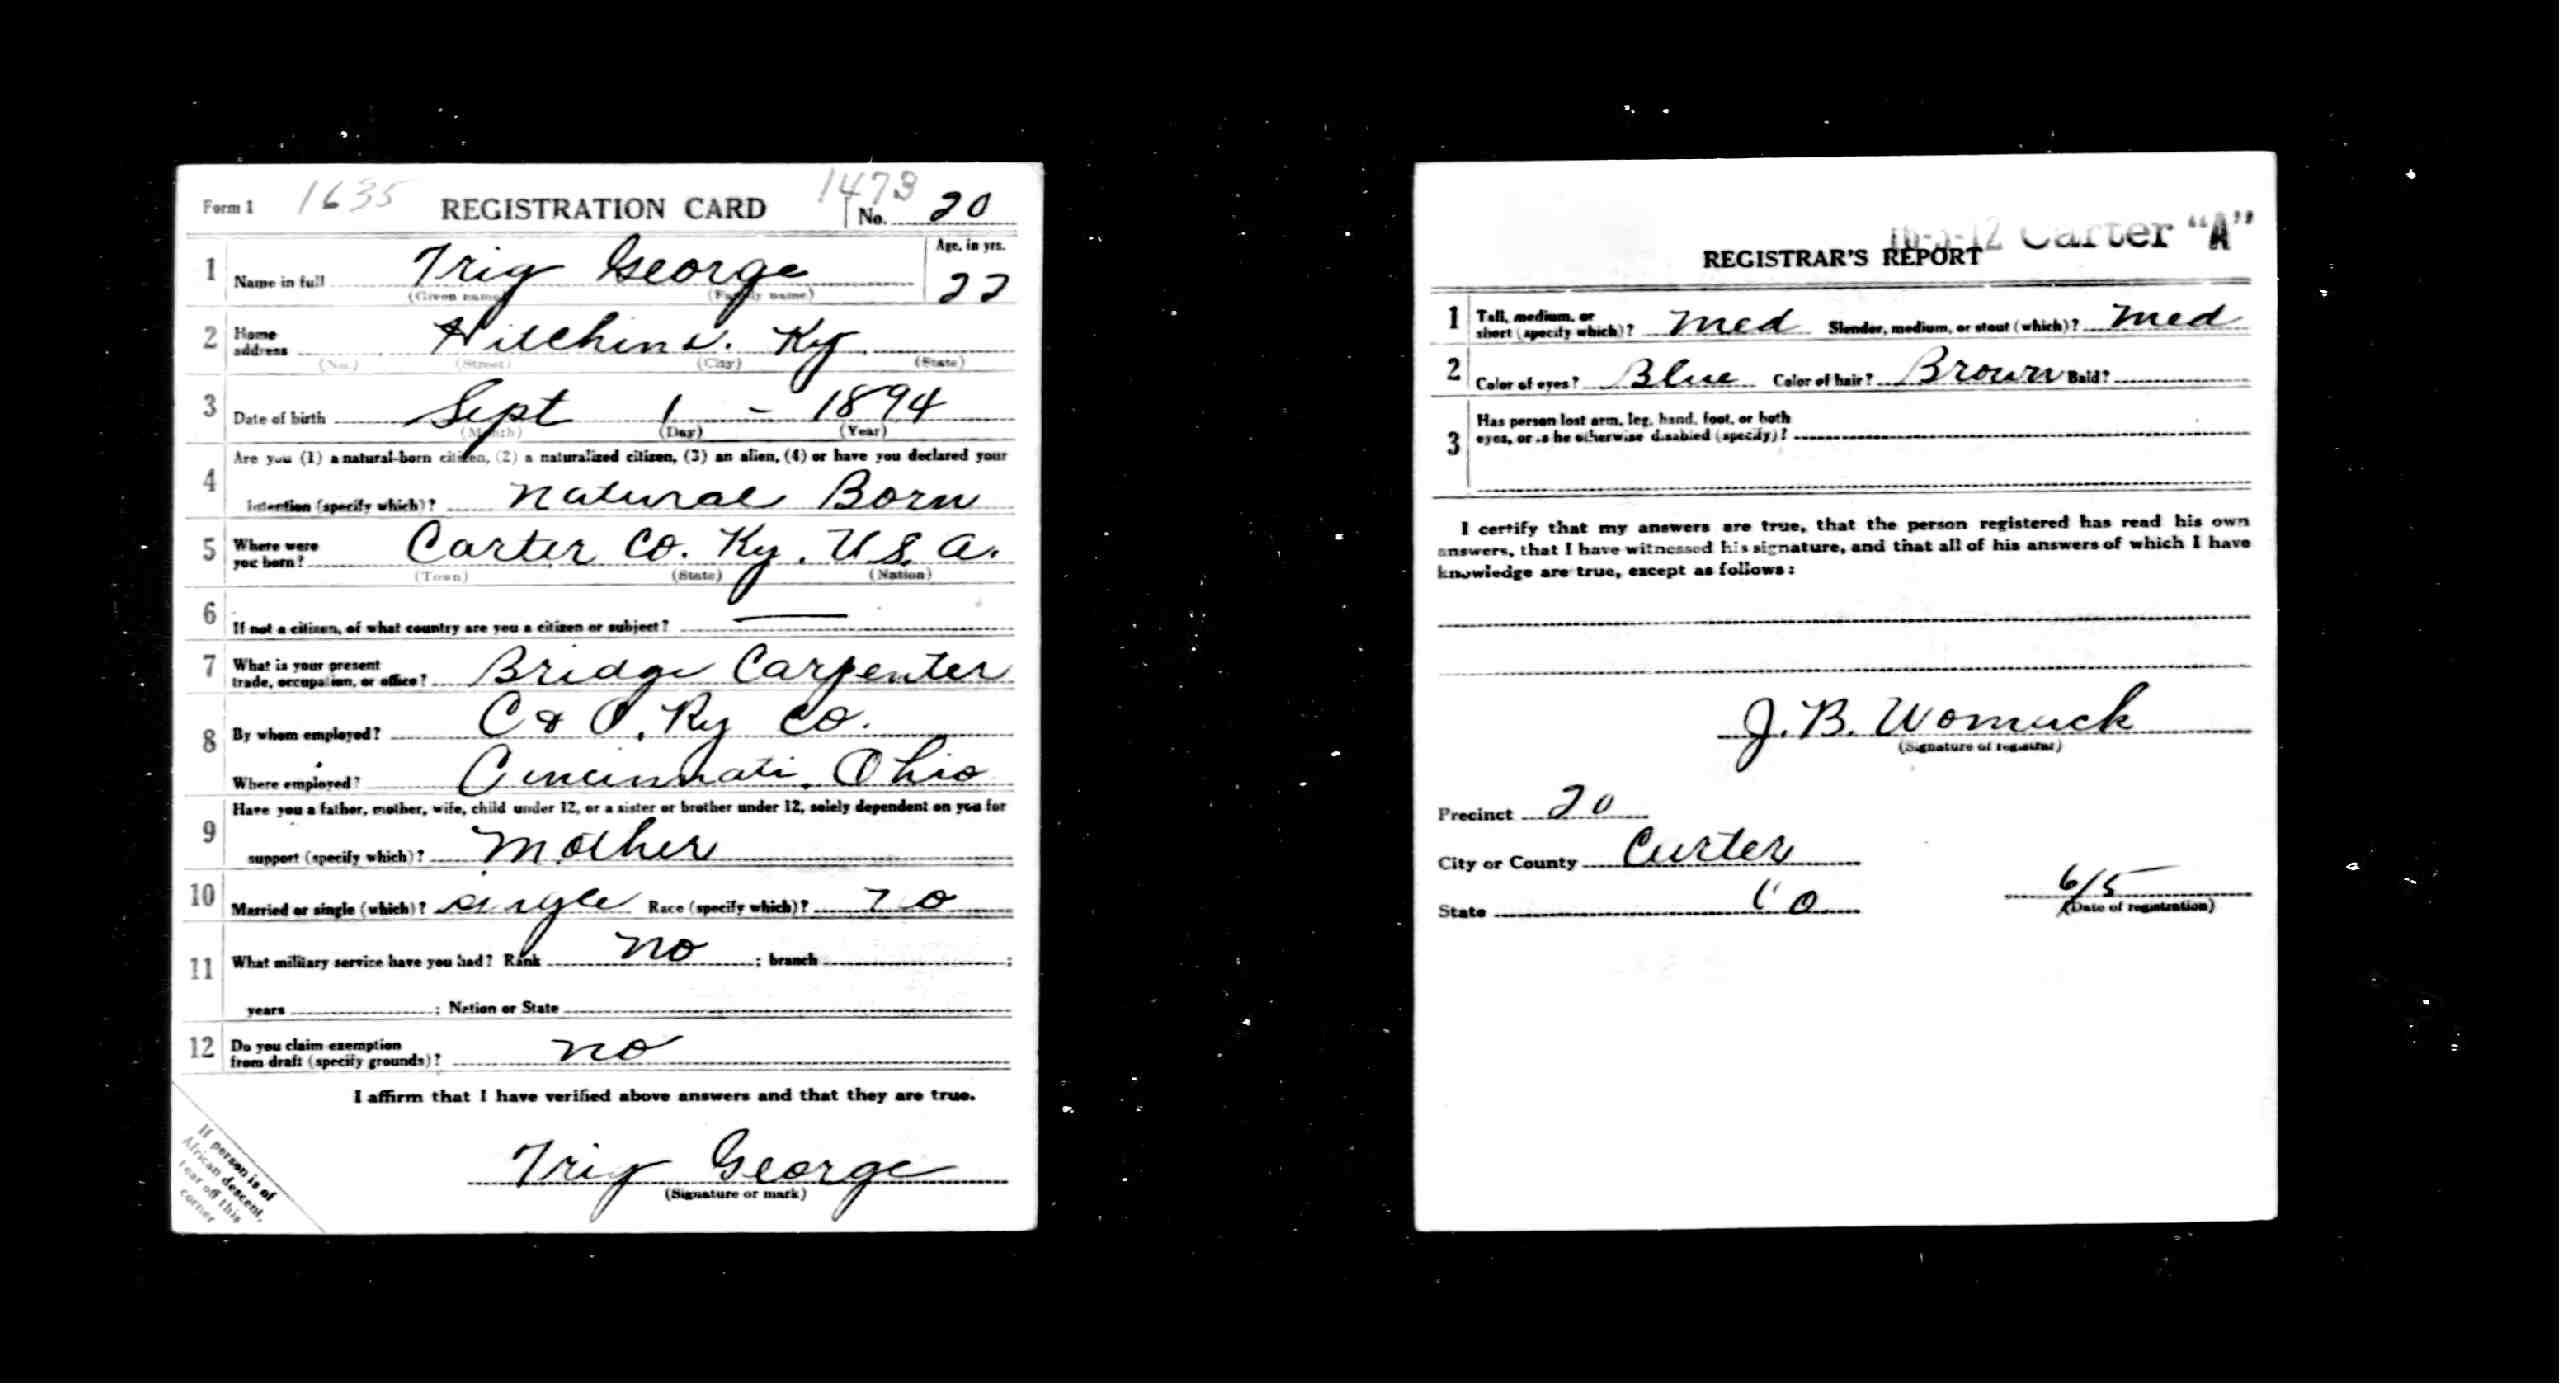 Form 1 1635 REGISTRATION CARD 1473 No. 20
1 Name in full Trig George Age, in yrs. 22
(Given name) (Family name)
2 Home address Hitchins. Ky
(No.) (Street) (City) (State)
3 Date of birth Sept 1 - 1894
(Month) (Day) (Year)
4 Are you (1) a natural-born citizen, (2) a naturalized citizen, (3) an alien, (4) or have you declared your
intention (specify which)? Natural Born
5 Where were you born? Carter Co. Ky. U.S.A.
(Town) (State) (Nation)
6 If not a citizen, of what country are you a citizen or subject? —
7 What is your present trade, occupation, or office? Bridge Carpenter
8 By whom employed? C & O. Ry Co.
Where employed? Cincinnati, Ohio
9 Have you a father, mother, wife, child under 12, or a sister or brother under 12, solely dependent on you for
support (specify which)? Mother
10 Married or single (which)? single Race (specify which)?
11 What military service have you had? Rank no ; branch ;
years ; Nation or State
12 Do you claim exemption from draft (specify grounds)? no
I affirm that I have verified above answers and that they are true.
Trig George
(Signature or mark)
If person is of
African descent,
tear off this
corner
16-5-12 Carter "A"
REGISTRAR'S REPORT
1 Tall, medium, or short (specify which)? Med Slender, medium, or stout (which)? Med
2 Color of eyes? Blue Color of hair? Brown Bald?
3 Has person lost arm, leg, hand, foot, or both
eyes, or is he otherwise disabled (specify)?
I certify that my answers are true, that the person registered has read his own
answers, that I have witnessed his signature, and that all of his answers of which I have
knowledge are true, except as follows:
J. B. Womack
(Signature of registrar)
Precinct 20
City or County Carter
State Co 6/5
(Date of registration)